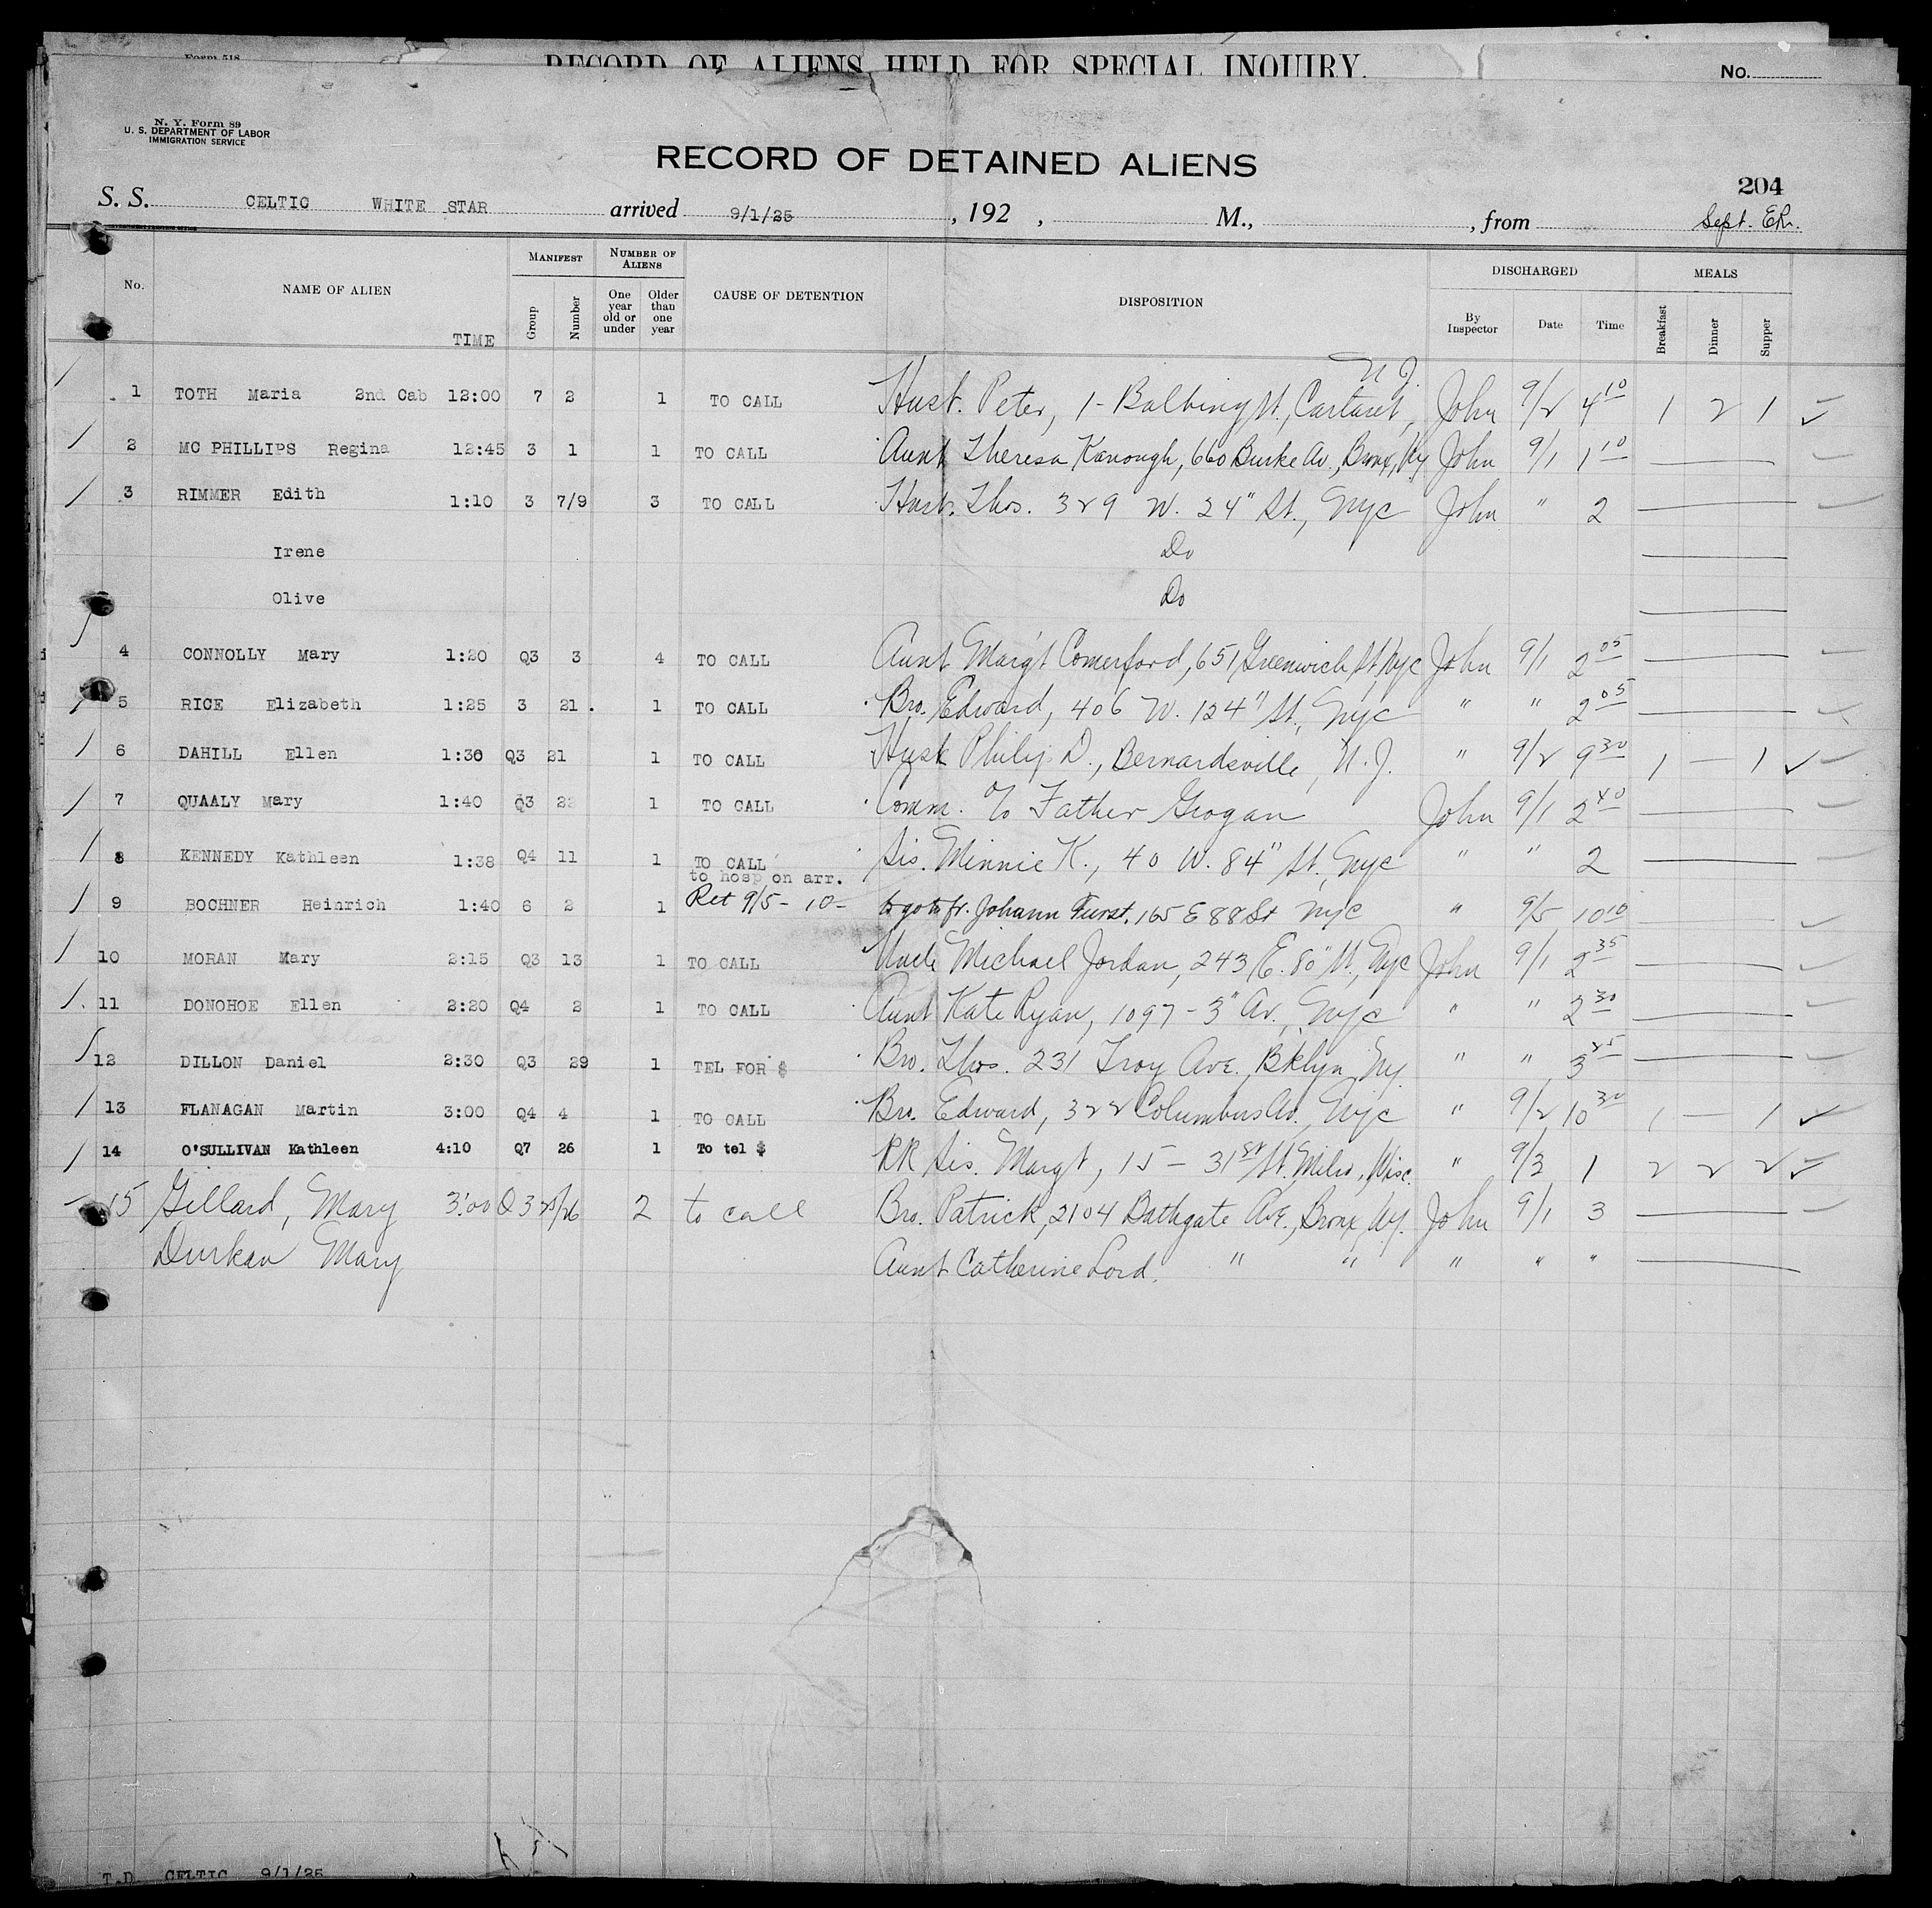 Form 518
RECORD OF ALIENS HELD FOR SPECIAL INQUIRY.
No.
N. Y. Form 89
U. S. DEPARTMENT OF LABOR
IMMIGRATION SERVICE
RECORD OF DETAINED ALIENS
204
S. S. CELTIC WHITE STAR arrived 9/1/25, 192 , M., , from Sept. ER.
No. NAME OF ALIEN TIME MANIFEST Group Number NUMBER OF ALIENS One year old or under Older than one year CAUSE OF DETENTION DISPOSITION DISCHARGED By Inspector Date Time MEALS Breakfast Dinner Supper
N J.
1 TOTH Maria 2nd Cab 12:00 7 2 1 TO CALL Husb. Peter, 1- Balbing St., Cartaret, John 9/2 4 10 1 2 1 ✓
2 MC PHILLIPS Regina 12:45 3 1 1 TO CALL Aunt Theresa Kavough, 660 Burke Av., Bronx, Ny John 9/1 1 10
3 RIMMER Edith 1:10 3 7/9 3 TO CALL Husb. Thos. 329 W. 24" St., Nyc John " 2
Irene Do
Olive Do
4 CONNOLLY Mary 1:20 Q3 3 4 TO CALL Aunt Marg't Comerford, 651 Greenwich St, Nyc John 9/1 2 05
5 RICE Elizabeth 1:25 3 21 . 1 TO CALL Bro. Edward, 406 W. 124" St., Nyc " " 2 05
6 DAHILL Ellen 1:30 Q3 21 1 TO CALL Husb Philip D., Bernardsville, N. J. " 9/2 9 30 1 — 1 ✓
7 QUAALY Mary 1:40 Q3 22 1 TO CALL Comm. c/o Father Grogan John 9/1 2 40
8 KENNEDY Kathleen 1:38 Q4 11 1 TO CALL Sis. Minnie K., 40 W. 84" St., Nyc " " 2
to hosp on arr.
9 BOCHNER Heinrich 1:40 6 2 1 Ret 9/5 - 10 - to go to fr. Johann Furst, 165 E 88 St Nyc " 9/5 10 10
10 MORAN Mary 2:15 Q3 13 1 TO CALL Uncle Michael Jordan, 243 E. 80" St., Nyc John 9/1 2 35
11 DONOHOE Ellen 2:20 Q4 2 1 TO CALL Aunt Kate Ryan, 1097 - 3" Av., Nyc " " 2 30
12 DILLON Daniel 2:30 Q3 29 1 TEL FOR $ Bro. Thos. 231 Troy Ave. Bklyn, Ny. " " 3 25
13 FLANAGAN Martin 3:00 Q4 4 1 TO CALL Bro. Edward, 322 Columbus Av., Nyc " 9/2 10 30 1 — 1 ✓
14 O'SULLIVAN Kathleen 4:10 Q7 26 1 To tel $ RR Sis. Margt, 15 - 31st St. Milw., Wisc. " 9/3 1 2 2 2 ✓
15 Gillard, Mary 3:00 Q3 25/26 2 to call Bro. Patrick, 2104 Bathgate Ave., Bronx, Ny. John 9/1 3
Durkan Mary Aunt Catherine Lord. " " " " "
T.D. CELTIC 9/1/25